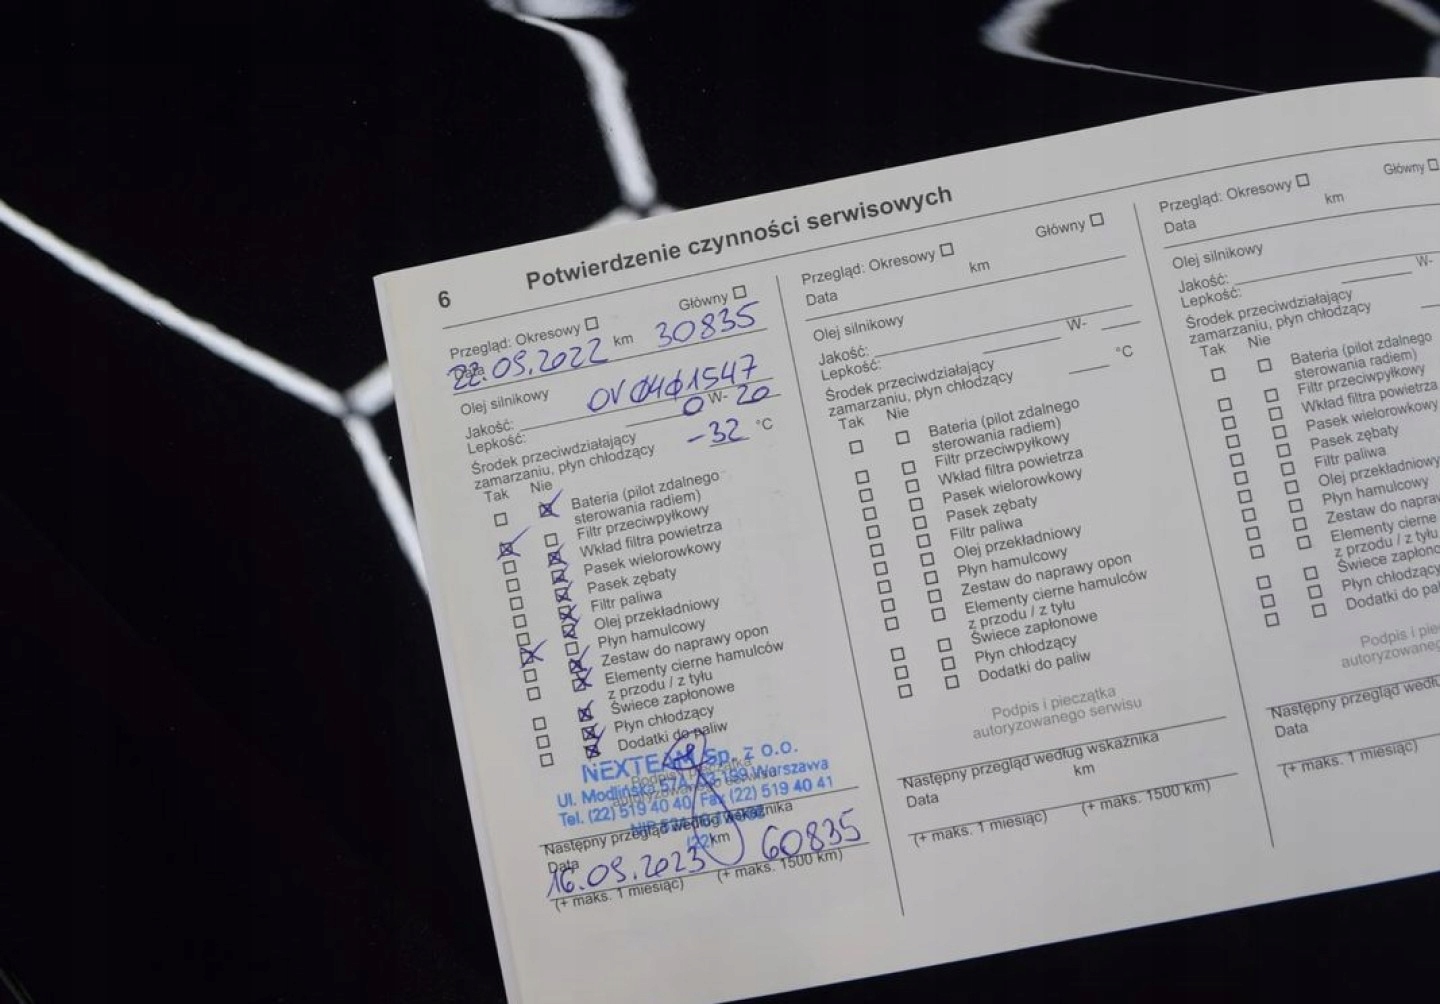 6
Potwierdzenie czynności serwisowych
Przegląd: Okresowy
Główny
Data 22.09.2022 km 30835
Olej silnikowy
Jakość: OV0401547
Lepkość: 0 W- 20
Środek przeciwdziałający
zamarzaniu, płyn chłodzący -32 °C
Tak Nie
Bateria (pilot zdalnego
sterowania radiem)
Filtr przeciwpyłkowy
Wkład filtra powietrza
Pasek wielorowkowy
Pasek zębaty
Filtr paliwa
Olej przekładniowy
Płyn hamulcowy
Zestaw do naprawy opon
Elementy cierne hamulców
z przodu / z tyłu
Świece zapłonowe
Płyn chłodzący
Dodatki do paliw
NEXTEAM Sp. z o.o.
Ul. Modlińska 03-199 Warszawa
Tel. (22) 519 40 40, Fax (22) 519 40 41
Następny przegląd według wskaźnika
Data
km
16.09.2023 60835
(+ maks. 1 miesiąc) (+ maks. 1500 km)
Przegląd: Okresowy
Główny
Data km
Olej silnikowy
Jakość:
Lepkość: W-
Środek przeciwdziałający
zamarzaniu, płyn chłodzący °C
Tak Nie
Bateria (pilot zdalnego
sterowania radiem)
Filtr przeciwpyłkowy
Wkład filtra powietrza
Pasek wielorowkowy
Pasek zębaty
Filtr paliwa
Olej przekładniowy
Płyn hamulcowy
Zestaw do naprawy opon
Elementy cierne hamulców
z przodu / z tyłu
Świece zapłonowe
Płyn chłodzący
Dodatki do paliw
Podpis i pieczątka
autoryzowanego serwisu
Następny przegląd według wskaźnika
Data km
(+ maks. 1 miesiąc) (+ maks. 1500 km)
Przegląd: Okresowy
Główny
Data km
Olej silnikowy
Jakość:
Lepkość: W-
Środek przeciwdziałający
zamarzaniu, płyn chłodzący
Tak Nie
Bateria (pilot zdalnego
sterowania radiem)
Filtr przeciwpyłkowy
Wkład filtra powietrza
Pasek wielorowkowy
Pasek zębaty
Filtr paliwa
Olej przekładniowy
Płyn hamulcowy
Zestaw do napraw
Elementy cierne
z przodu / z tyłu
Świece zapłono
Płyn chłodzący
Dodatki do pal
Podpis i pie
autoryzowaneg
Następny przegląd wedłu
Data
(+ maks. 1 miesiąc)